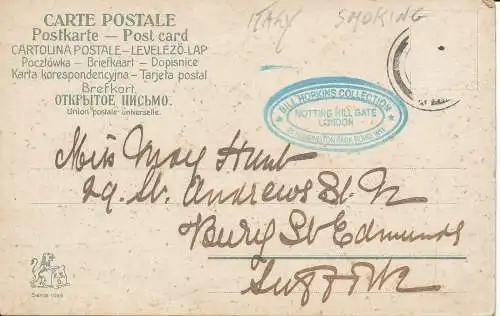 CARTE POSTALE
Postkarte — Post card
CARTOLINA POSTALE — LEVELEZŐ-LAP
Pocztówka — Briefkaart — Dopisnice
Karta korespondencyjna — Tarjeta postal
Brefkort
ОТКРЫТОЕ ПИСЬМО.
Union postale universelle.
ITALY SMOKING
BILL HOPKINS COLLECTION
NOTTING HILL GATE
LONDON
Miss May Hunt
29. St. Andrews St. N
Bury St Edmunds
Suffolk